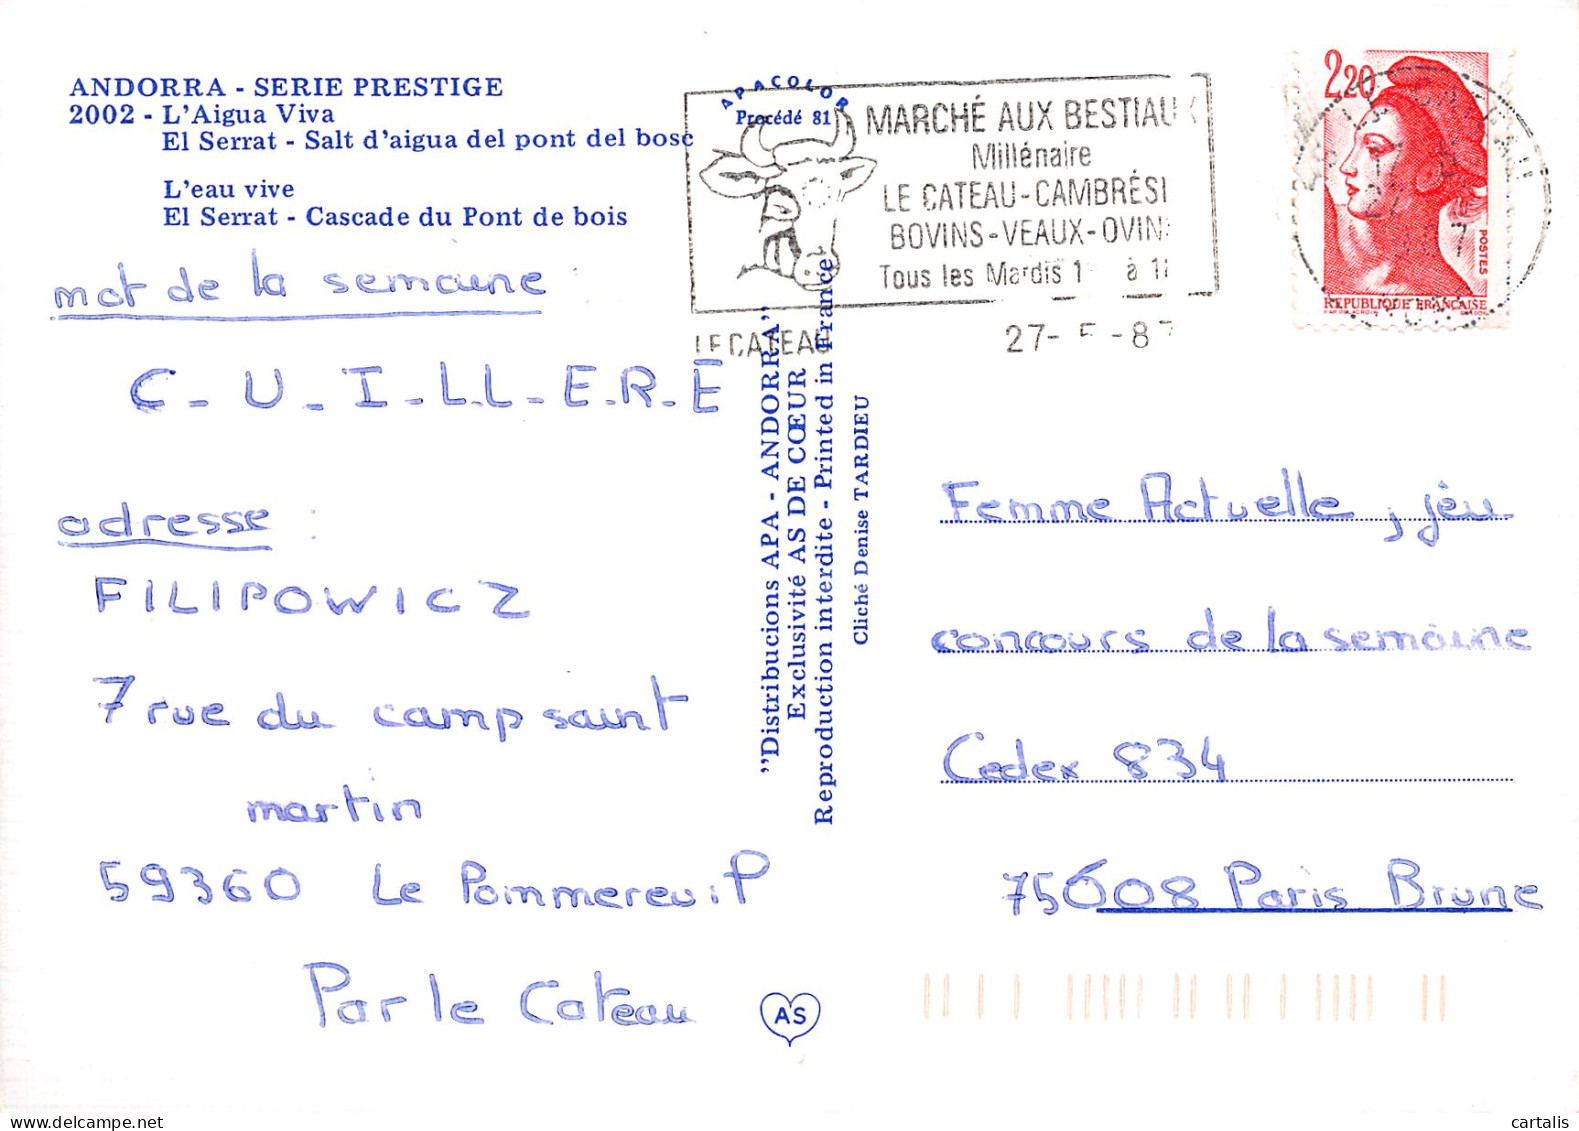 ANDORRA - SERIE PRESTIGE
2002 - L'Aigua Viva
El Serrat - Salt d'aigua del pont del bosc
L'eau vive
El Serrat - Cascade du Pont de bois
mot de la semaine :
C - U - I - L - L - E - R - E
adresse :
FILIPOWICZ
7 rue du camp saint
martin
59360 Le Pommereuil
Par le Cateau
APACOLOR
Procédé 81
MARCHÉ AUX BESTIAUX
Millénaire
LE CATEAU-CAMBRÉSI
BOVINS-VEAUX-OVINS
Tous les Mardis 1 à 1
LE CATEAU
27- 5 -87
2,20
POSTES
REPUBLIQUE FRANCAISE
"Distribucions APA - ANDORRA"
Exclusivité AS DE CŒUR
Reproduction interdite - Printed in France
Cliché Denise TARDIEU
Femme Actuelle, jeu
concours de la semaine
Cedex 834
75608 Paris Brune
AS
cartalis